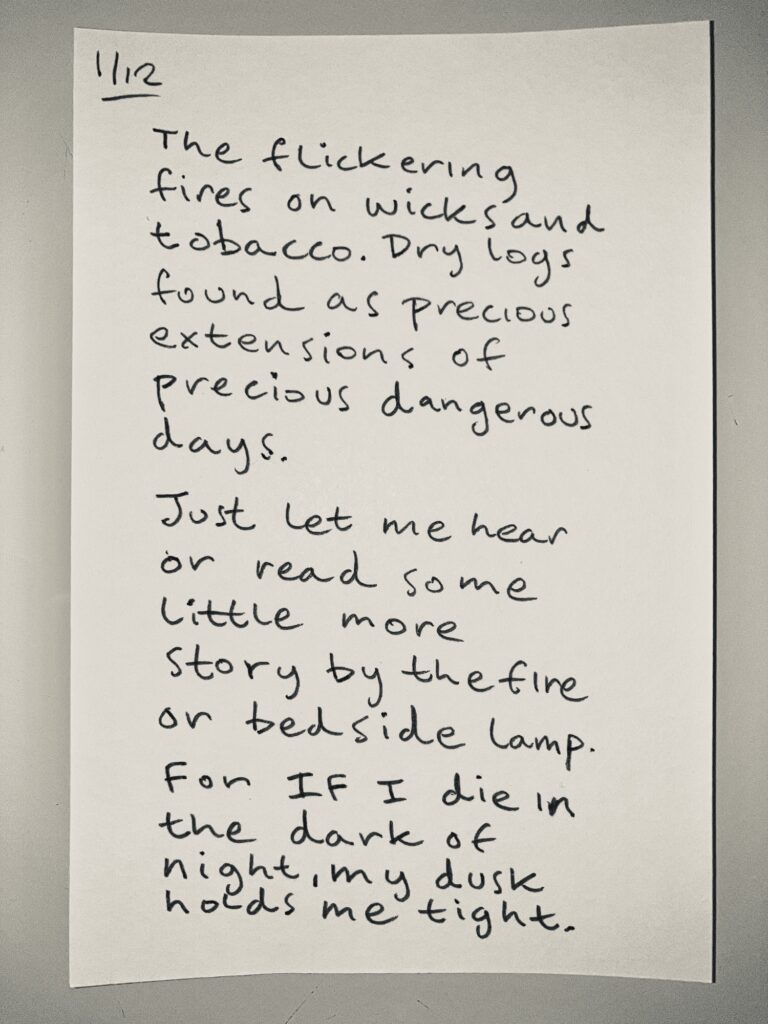 1/12
The flickering
fires on wicks and
tobacco. Dry logs
found as precious
extensions of
precious dangerous
days.
Just let me hear
or read some
little more
story by the fire
or bedside lamp.
For IF I die in
the dark of
night, my dusk
holds me tight.